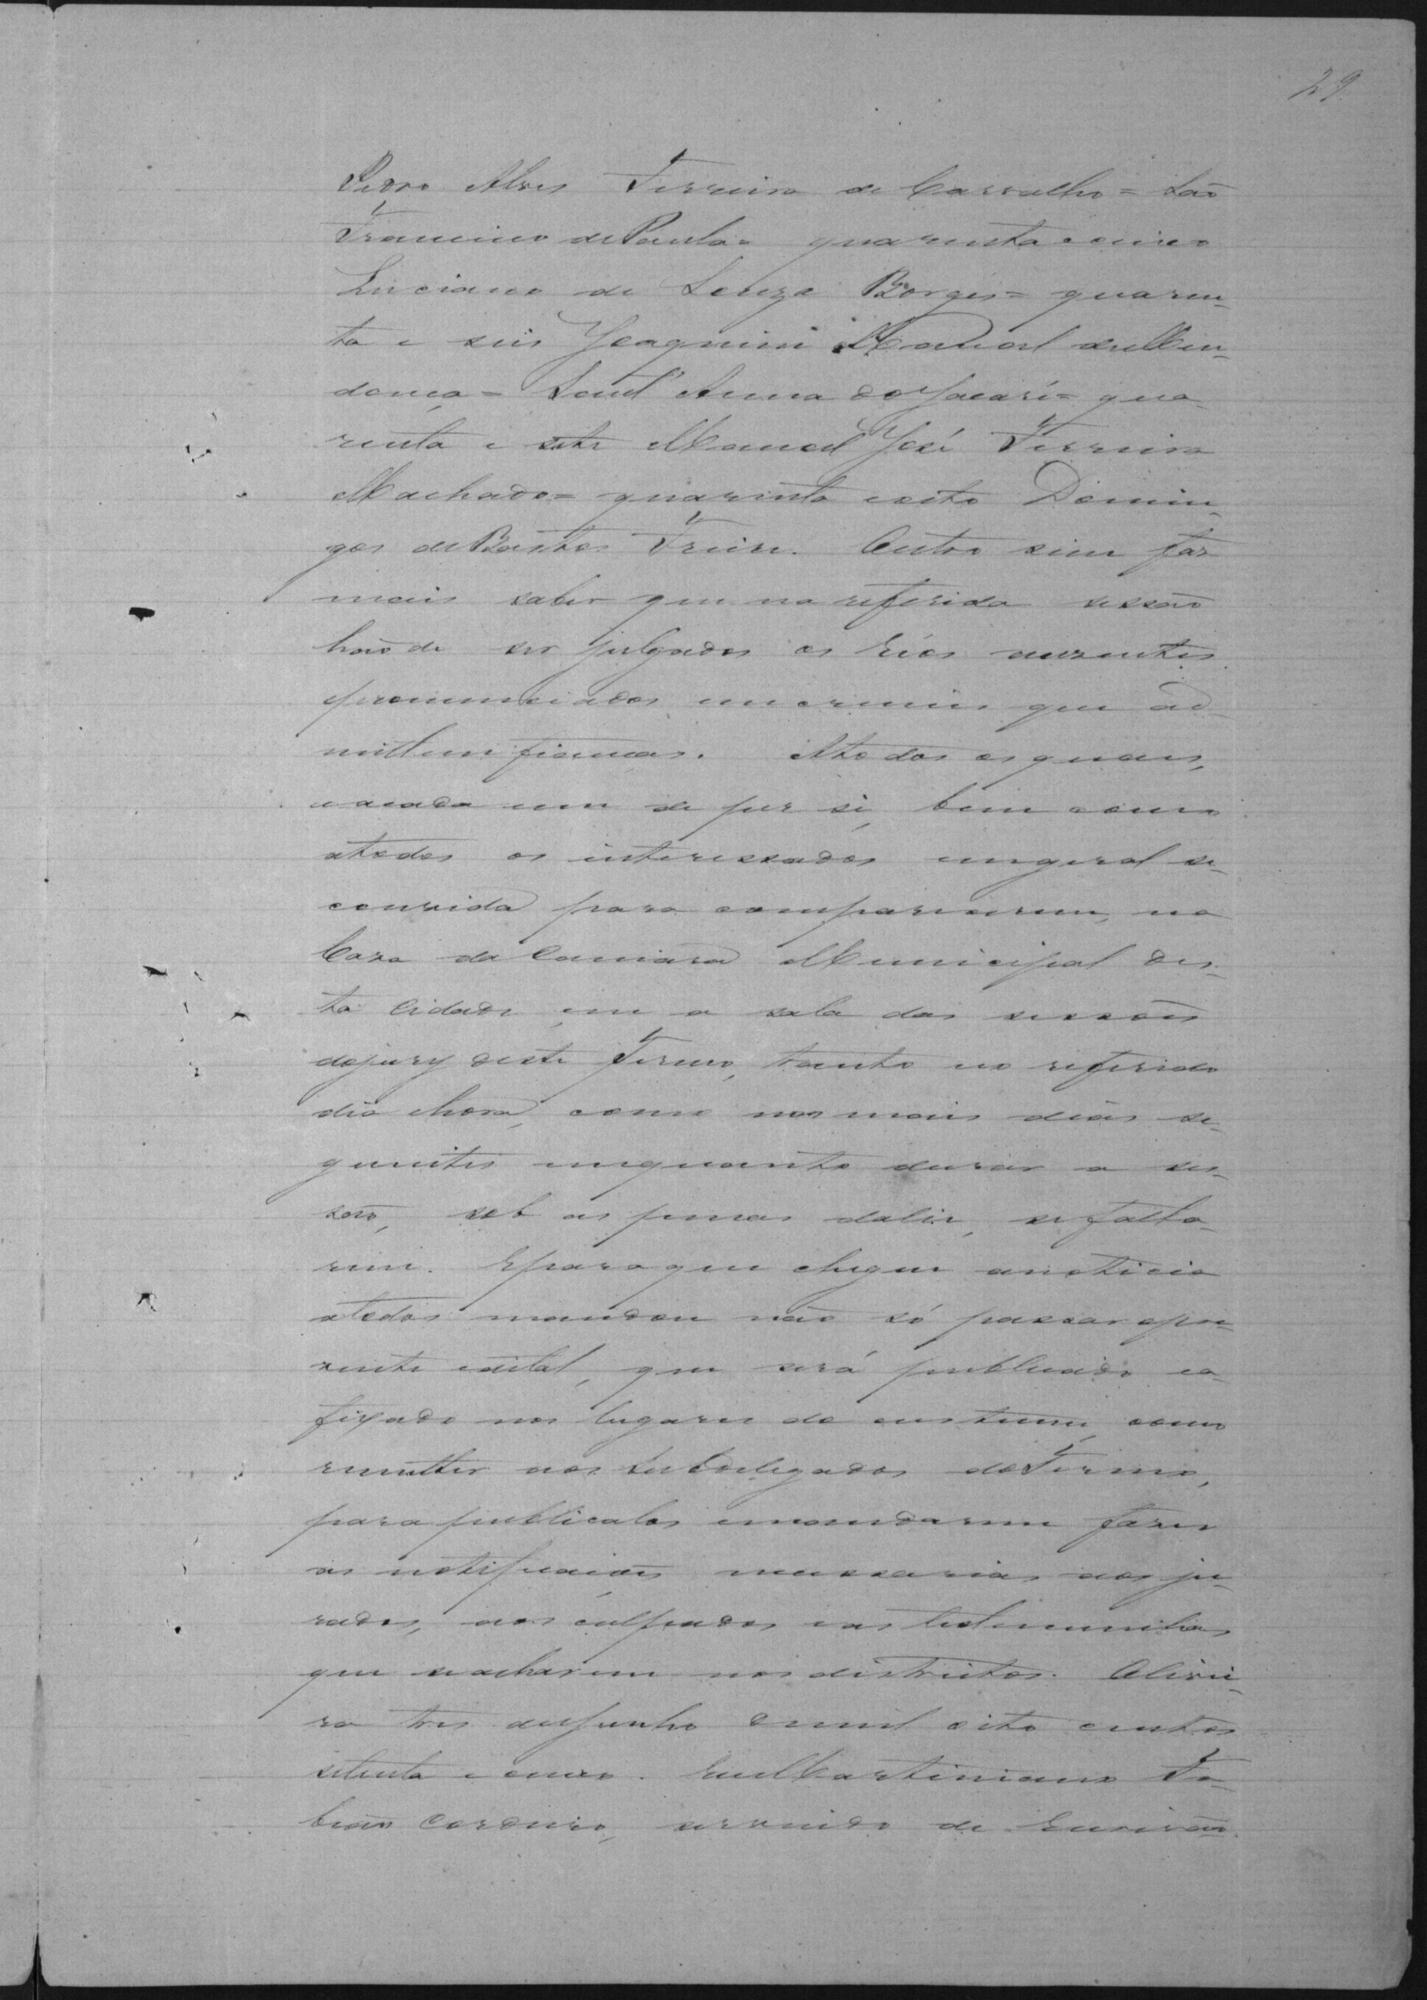 29
Pedro Alves Ferreira de Carvalho = São
Francisco de Paula = quarenta e cinco
Luciano de Souza Borges = quaren-
ta e seis Joaquim Manoel de Men-
donça = Sant'Anna do Jacaré = qua-
renta e sete Manoel José Ferreira
Machado = quarenta e oito Domin-
gos de Bastos Freire. Outro sim faz
mais saber que na referida sessão
hão de ser julgados os réos auzentes
pronunciados em crimes que ad-
mittem fianças. A todos os quaes,
e a cada um de per si, bem como
a todos os interessados em geral se
convida para comparecerem, na
Caza da Camara Municipal des-
ta Cidade em a sala das sessões
do jury deste Termo, tanto no referido
dia e hora, como nos mais dias se-
guintes emquanto durar a ses-
são, sob as penas da lei, se falta-
rem. E para que chegue a noticia
a todos mandou não só passar o pre-
zente edital, que será publicado e a-
fixado nos lugares do custume, como
remetter aos Subdelegados do Termo,
para publicalos e mandarem fazer
as notificações necessarias aos ju-
rados, aos culpados e as testemunhas
que se acharem nos districtos. Olivei-
ra tres de Junho de mil oito centos
setenta e cinco. Eu Martiniano Fa-
bião Cordeiro, servindo de Escrivão